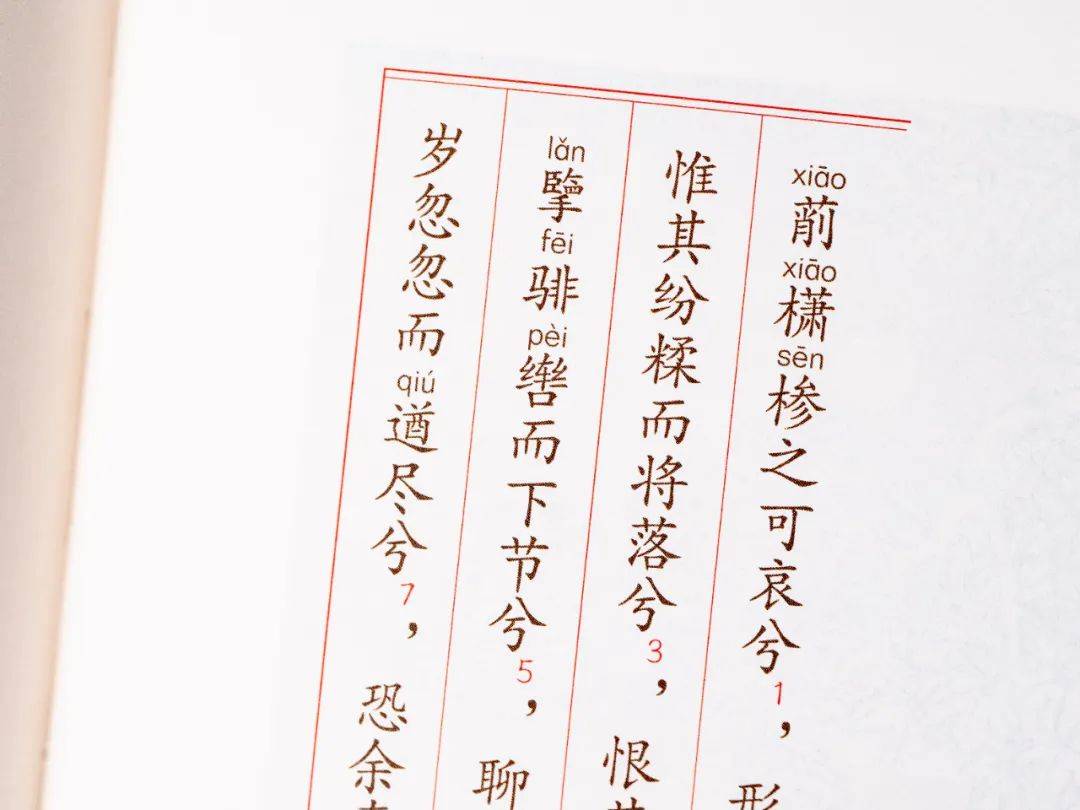 xiāo萷xiāo櫹sēn椮之可哀兮1，形
惟其纷糅而将落兮3，恨其
lǎn擥fēi𬴂pèi辔而下节兮5，聊
岁忽忽而qiú遒尽兮7，恐余